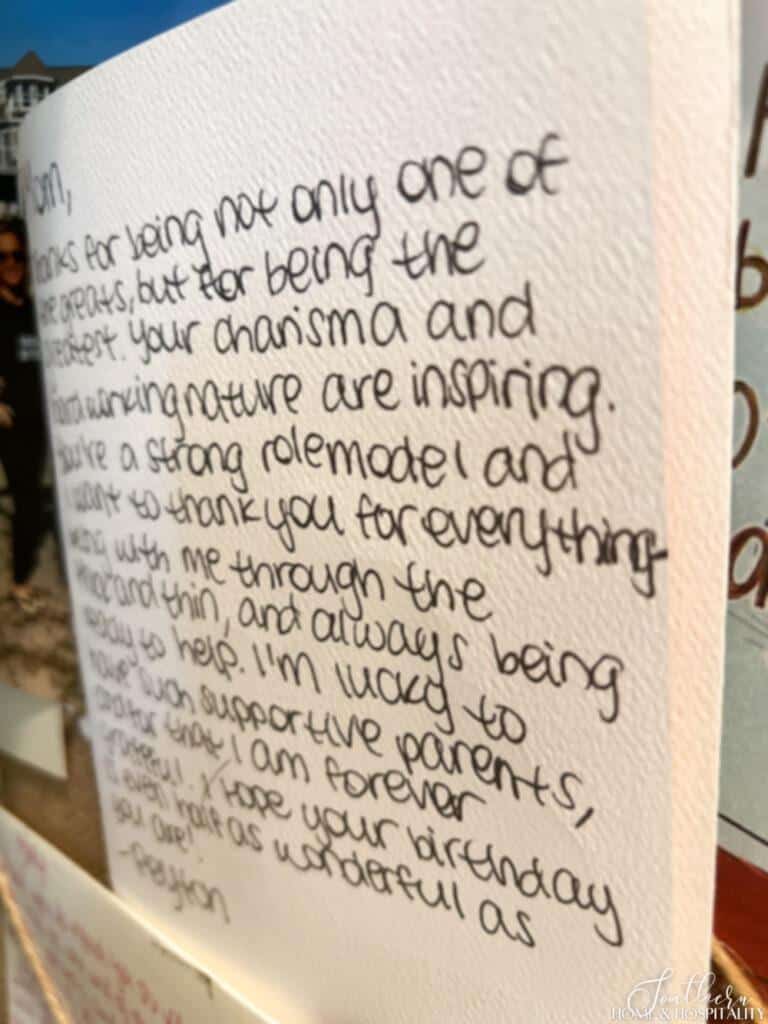 Mom,
Thanks for being not only one of
the greats, but for being the
greatest. Your charisma and
hardworking nature are inspiring.
You're a strong rolemodel and
I want to thank you for everything-
being with me through the
thick and thin, and always being
ready to help. I'm lucky to
have such supportive parents,
and for that I am forever
grateful. I hope your birthday
is even half as wonderful as
you are!
-Peyton
Southern
HOME & HOSPITALITY